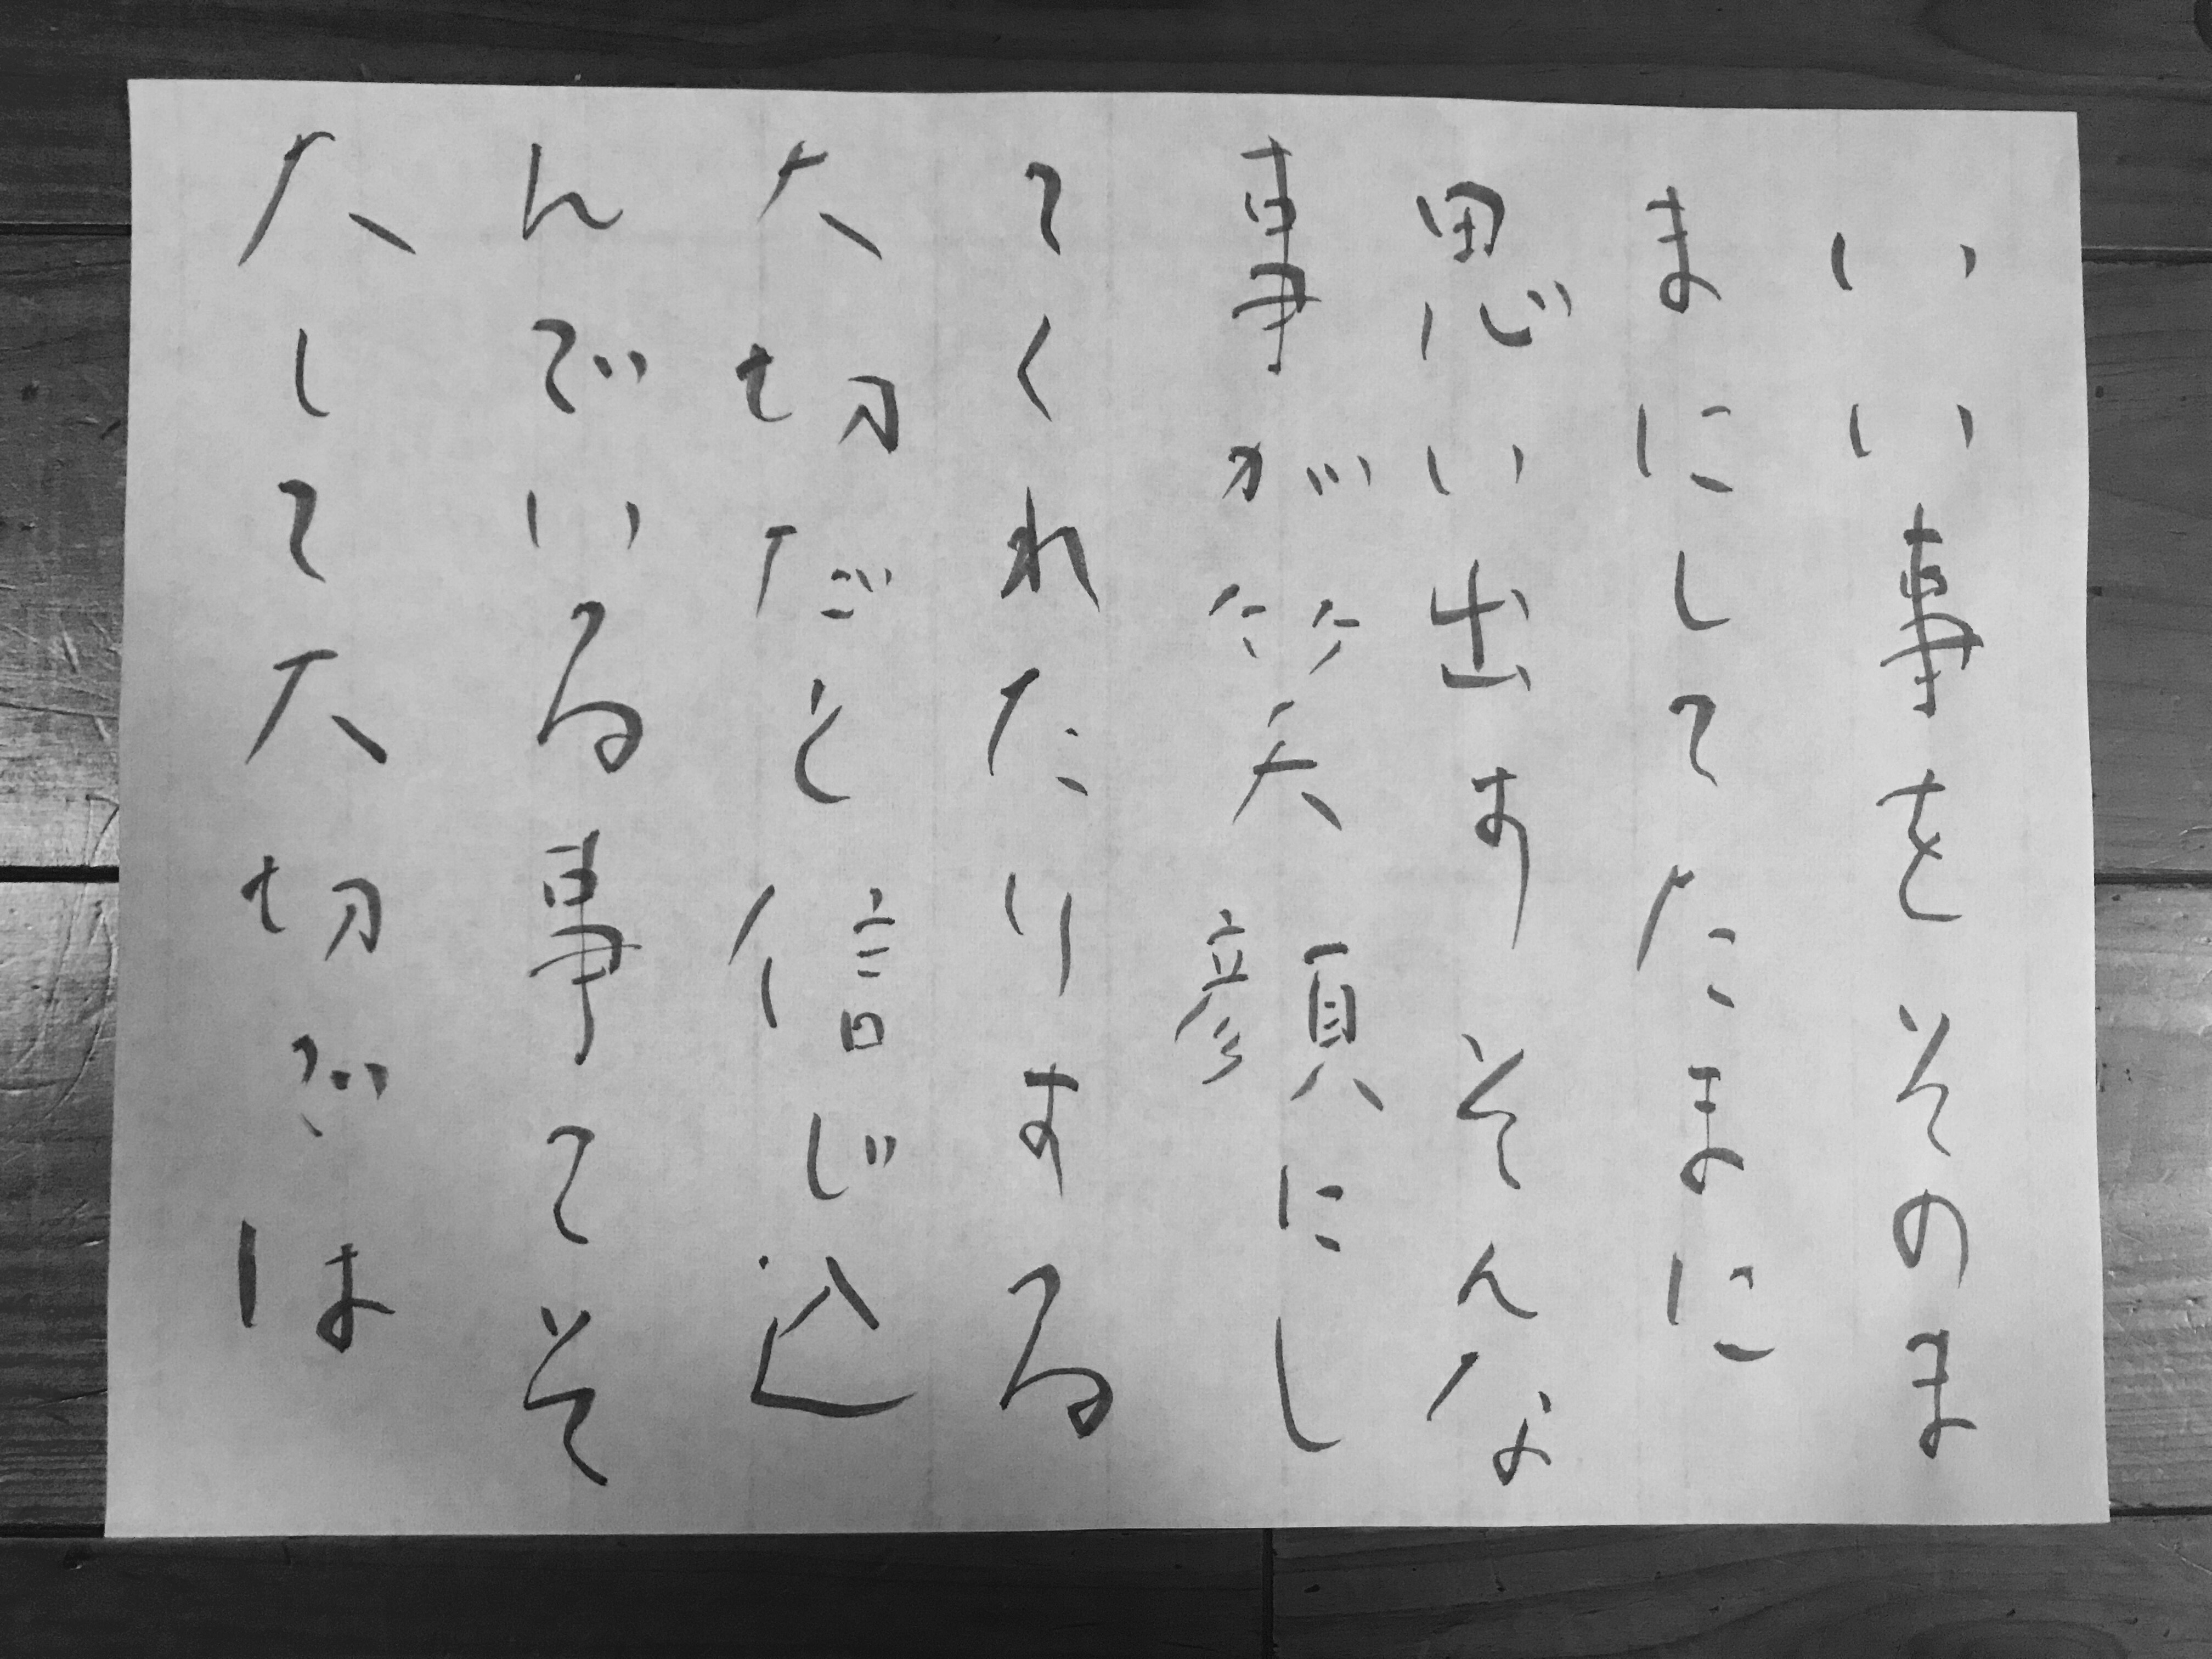 いい事をそのま
まにしてたまに
思い出すそんな
事が笑顔にし
てくれたりする
大切だと信じ込
んでいる事てそ
大して大切では